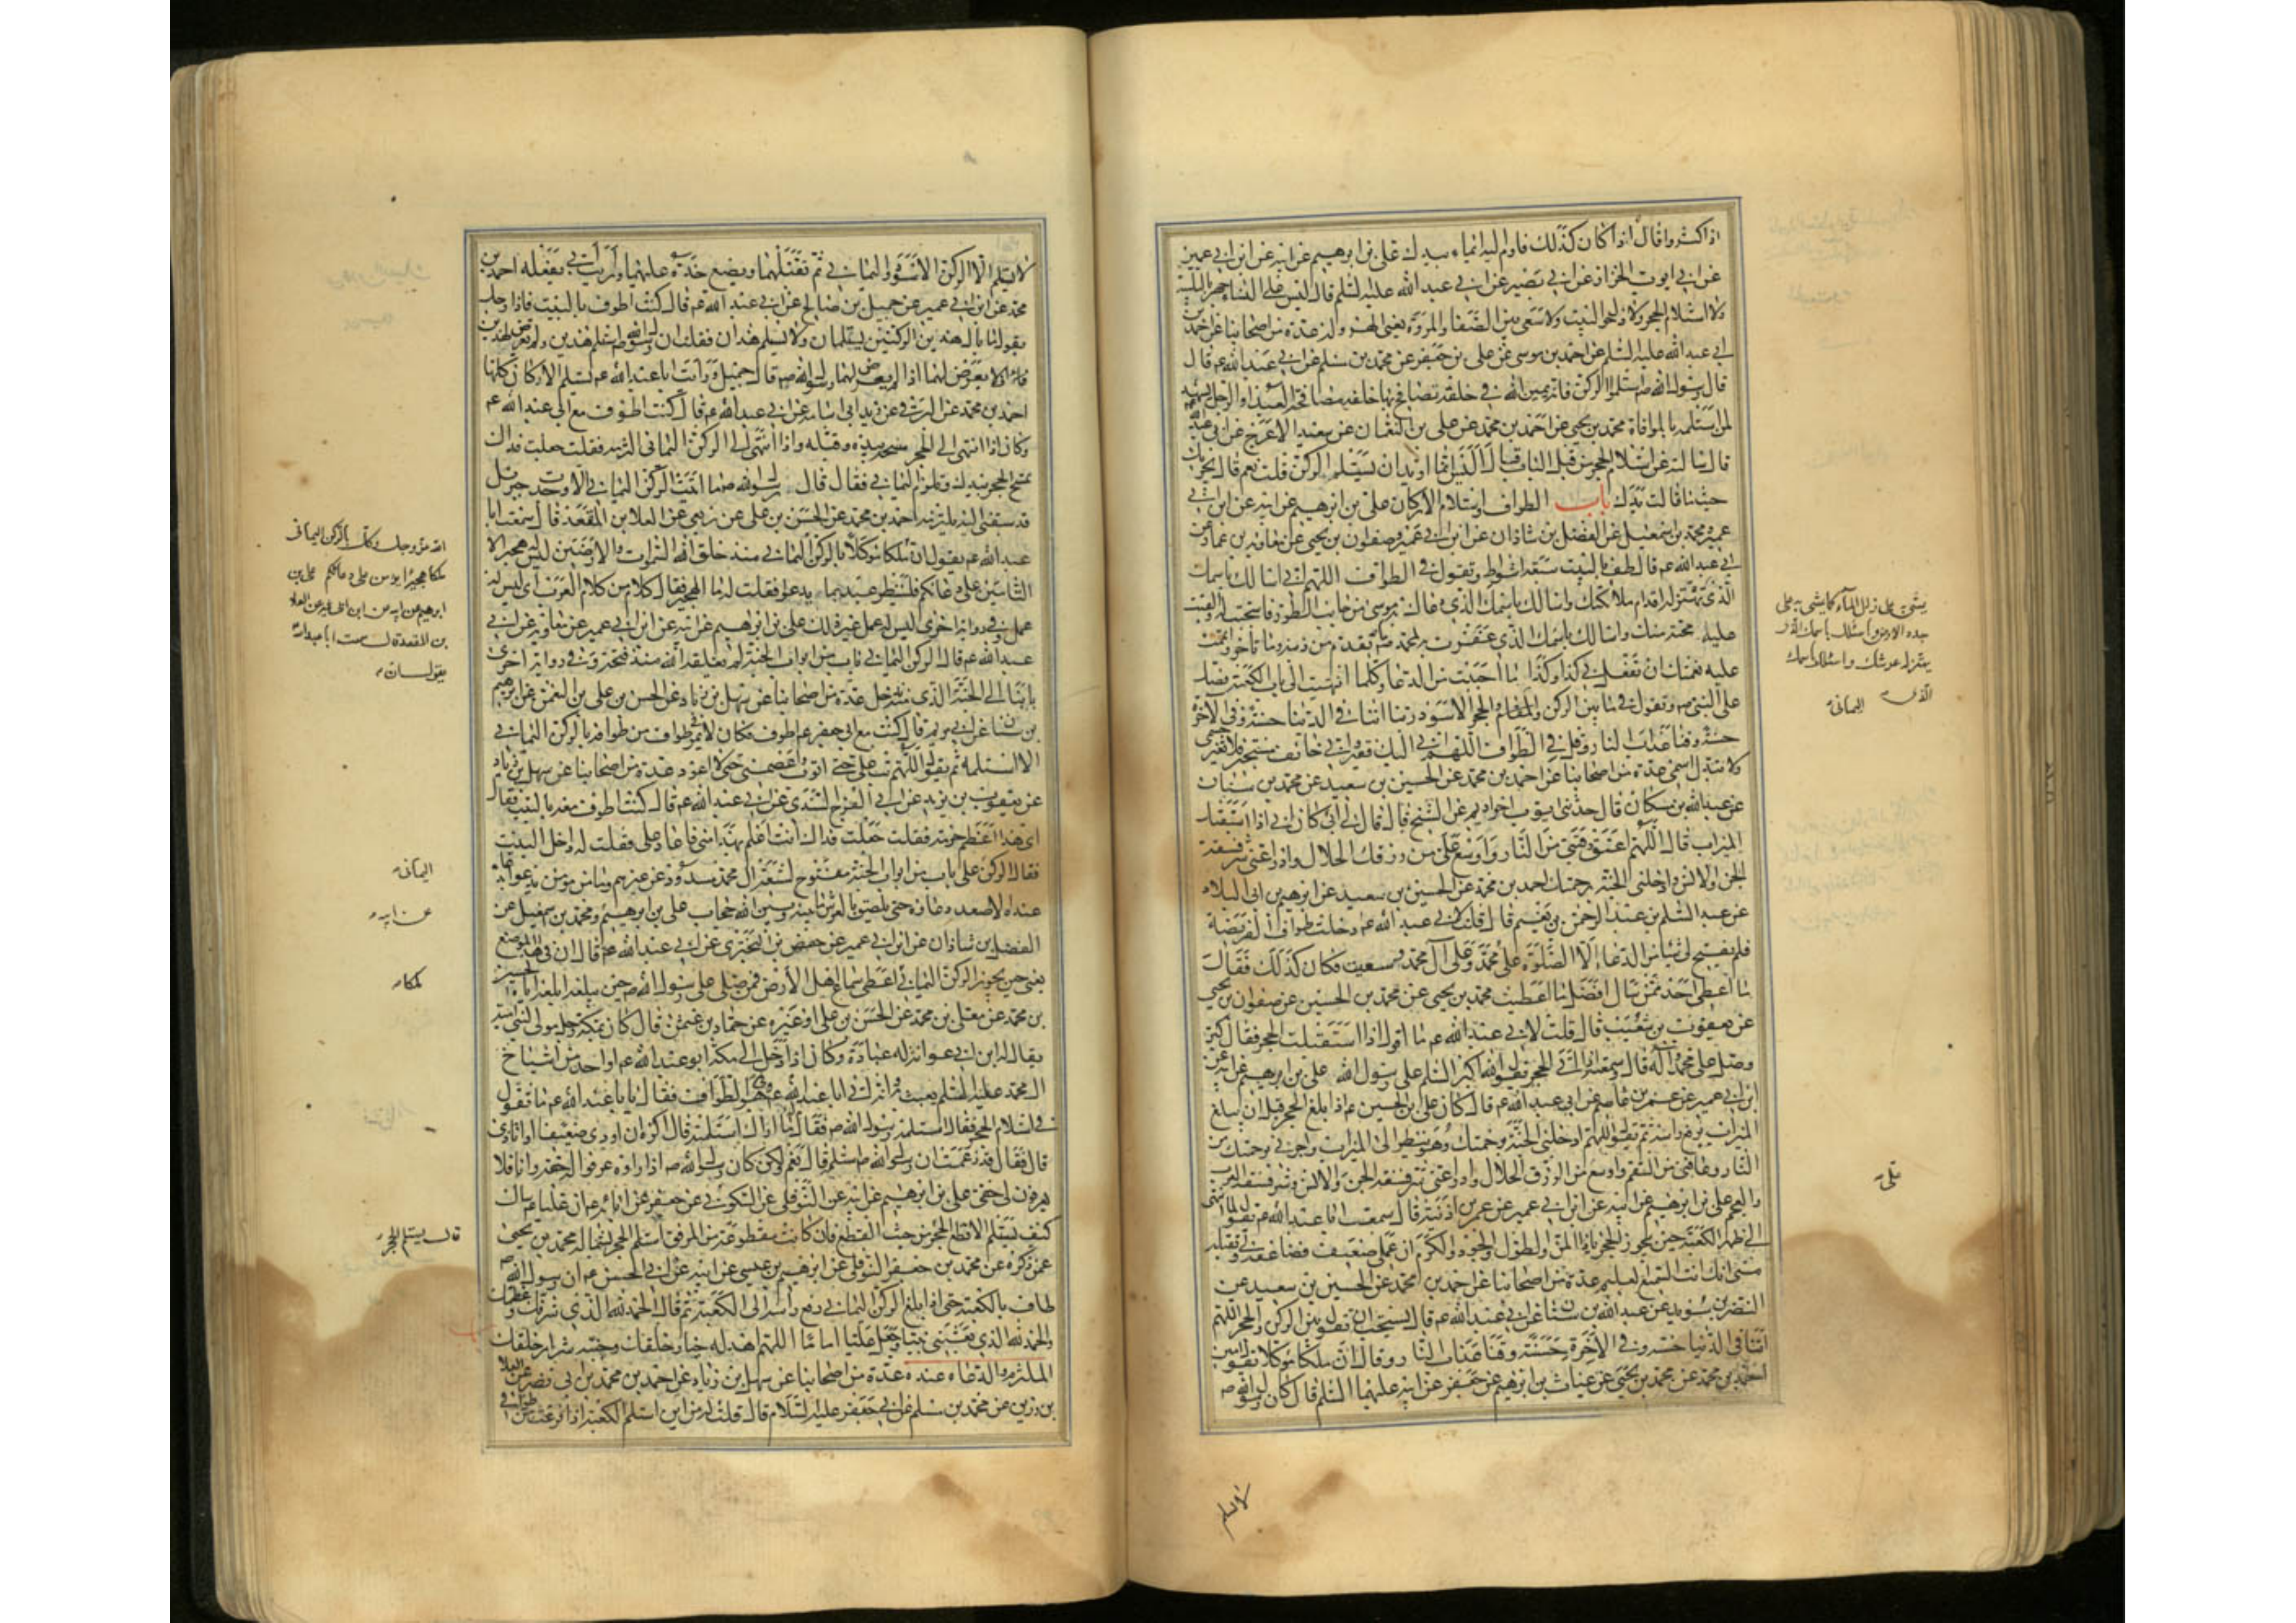 اذا كثروا قال اذا كان كذلك فاوم اليه ايماء بيدك علي بن ابرهيم عن ابيه عن ابن ابي عمير
عن ابي ايوب الخزاز عن ابي بصير عن ابي عبد الله عليه السلم قال ليس على النساء جهر بالتلبية
ولا استلام الحجر ولا دخول البيت ولا سعي بين الصفا والمروة يعني الهرولة عدة من اصحابنا عن احمد بن
ابي عبد الله عليه السلم عن احمد بن موسى عن علي بن جعفر عن محمد بن مسلم عن ابي عبد الله عم قال
قال رسول الله ص استلموا الركن فانه يمين الله في خلقه يصافح بها خلقه مصافحة العبد او الرجل يشهد
لمن استلمه بالموافاة محمد بن يحيى عن احمد بن محمد عن علي بن النعمان عن سعيد الاعرج عن ابي عبد الله
قال سالته عن استلام الحجر من قبل الباب فقال اليس انما تريد ان تستلم الركن قلت نعم قال يجزيك
حيثما نالت يدك باب الطواف واستلام الاركان علي بن ابرهيم عن ابيه عن ابن ابي
عمير ومحمد بن اسمعيل عن الفضل بن شاذان عن ابن ابي عمير وصفوان بن يحيى عن معاوية بن عمار عن
ابي عبد الله عم قال طف بالبيت سبعة اشواط وتقول في الطواف اللهم اني اسالك باسمك
الذي تهتز له اقدام ملائكتك واسالك باسمك الذي دعاك به موسى من جانب الطور فاستجبت له والقيت
عليه محبة منك واسالك باسمك الذي غفرت به لمحمد ص ما تقدم من ذنبه وما تاخر واتممت
عليه نعمتك ان تفعل بي كذا وكذا ما احببت من الدعا وكلما انتهيت الى باب الكعبة فصل
على النبي ص وتقول فيما بين الركن اليماني والحجر الاسود ربنا اتنا في الدنيا حسنة وفي الاخرة
حسنة وقنا عذاب النار وقل في الطواف اللهم اني اليك فقير واني خائف مستجير فلا تغير جسمي
ولا تبدل اسمي عدة من اصحابنا عن احمد بن محمد عن الحسين بن سعيد عن محمد بن سنان
عن عبد الله بن مسكان قال حدثني ايوب اخو اديم عن الشيخ قال قال لي ابي كان ابي اذا استقبل
الميزاب قال اللهم اعتق رقبتي من النار واوسع علي من رزقك الحلال وادرا عني شر فسقة
الجن والانس وادخلني الجنة برحمتك احمد بن محمد عن الحسين بن سعيد عن ابرهيم بن ابي البلاد
عن عبد السلم بن عبد الرحمن بن نعيم قال قلت لابي عبد الله عم دخلت طواف الفريضة
فلم يفتح لي شيء من الدعاء الا الصلوة على محمد وعلى آل محمد وسعيت فكان كذلك فقال
ما اعطي احد ممن سال افضل مما اعطيت محمد بن يحيى عن محمد بن الحسين عن صفوان بن يحيى
عن يعقوب بن شعيب قال قلت لابي عبد الله عم ما اقول اذا استقبلت الحجر فقال كبر
وصل على محمد وآله قال وسمعته اذا اتى الحجر يقول الله اكبر السلم على رسول الله علي بن ابرهيم عن ابيه عن
ابن ابي عمير عن عمر بن عاصم عن ابي عبد الله عم قال كان علي بن الحسين عم اذا بلغ الحجر قبل ان يبلغ
الميزاب يرفع راسه ثم يقول اللهم ادخلني الجنة برحمتك وهو ينظر الى الميزاب واجرني برحمتك من
النار وعافني من السقم واوسع من الرزق الحلال وادرا عني شر فسقة الجن والانس وشر فسقة العرب
والعجم علي بن ابرهيم عن ابيه عن ابن ابي عمير عن عمر بن اذينة قال سمعت ابا عبد الله عم يقول لما انتهى
الى ظهر الكعبة حين يجوز الحجر يا ذا المن والطول والجود والكرم ان عملي ضعيف فضاعفه لي وتقبله
مني انك انت السميع العليم عدة من اصحابنا عن احمد بن محمد عن الحسين بن سعيد عن
النضر بن سويد عن عبد الله بن سنان عن ابي عبد الله عم قال يستحب ان تقول بين الركن والحجر اللهم
آتنا في الدنيا حسنة وفي الاخرة حسنة وقنا عذاب النار وقال ان ملكا موكلا يقول امين
احمد بن محمد عن محمد بن يحيى عن غياث بن ابرهيم عن جعفر عن ابيه عليهما السلم قال كان رسول الله ص
لا يستلم
على
لا يستلم الا الركن الاسود واليماني ثم يقبلهما ويضع خده عليهما ورايت ابي يفعله احمد بن
محمد عن ابن ابي عمير عن جميل بن صالح عن ابي عبد الله عم قال كنت اطوف بالبيت فاذا رجل
يقول ما بال هذين الركنين يستلمان ولا يستلم هذان فقلت ان رسول الله ص استلم هذين ولم يعرض لهذين
فلا تعرض لهما اذا لم يعرض لهما رسول الله ص قال جميل ورايت ابا عبد الله عم يستلم الاركان كلها
احمد بن محمد عن البرقي عن زيد ابي اسامة عن ابي عبد الله عم قال كنت اطوف مع ابي عبد الله عم
وكان اذا انتهى الى الحجر مسحه بيده وقبله واذا انتهى الى الركن اليماني التزمه فقلت جعلت فداك
تمسح الحجر بيدك وتلتزم اليماني فقال قال رسول الله ص ما اتيت الركن اليماني الا وجدت جبرئيل
قد سبقني اليه يلتزمه احمد بن محمد عن الحسن بن علي عن ربعي عن العلا بن المقعد قال سمعت ابا
عبد الله عم يقول ان ملكا موكلا بالركن اليماني منذ خلق الله السموات والارضين ليس له هجير الا
التامين على دعائكم فلينظر عبد بما يدعو فقلت له ما الهجير فقال كلام من كلام العرب اي ليس له
عمل وفي رواية اخرى ليس له عمل غير ذلك علي بن ابرهيم عن ابيه عن ابن ابي عمير عن معاوية عن ابي
عبد الله عم قال الركن اليماني باب من ابواب الجنة لم يغلقه الله منذ فتحه وفي رواية اخرى
بابنا الى الجنة الذي منه ندخل عدة من اصحابنا عن سهل بن زياد عن الحسن بن علي بن النعمان عن ابرهيم
بن سنان عن ابي مريم قال كنت مع ابي جعفر عم اطوف فكان لا يمر في طواف من طوافه بالركن اليماني
الا استلمه ثم يقول اللهم تب علي حتى اتوب واعصمني حتى لا اعود عدة من اصحابنا عن سهل بن زياد
عن يعقوب بن يزيد عن ابي الفرج السندي عن ابي عبد الله عم قال كنت اطوف معه بالبيت فقال
اي هذا اعظم حرمة فقلت جعلت فداك انت اعلم بهذا مني فاعاد علي فقلت له داخل البيت
فقال الركن على باب من ابواب الجنة مفتوح لشيعة آل محمد مسدود عن غيرهم وما من مؤمن يدعو بدعاء
عنده الا صعد دعاؤه حتى يلصق بالعرش ما بينه وبين الله حجاب علي بن ابرهيم ومحمد بن اسمعيل عن
الفضل بن شاذان عن ابن ابي عمير عن حفص بن البختري عن ابي عبد الله عم قال ان في هذا الموضع
يعني حين يجوز الركن اليماني اعطي سماع اهل الارض فمن صلى على رسول الله ص حين يبلغه ابلغه اياه الحسين
بن محمد عن معلى بن محمد عن الحسن بن علي او غيره عن حماد بن عثمن قال كان بمكة رجل مولى لبني امية
يقال له ابن ابي عوانة له عبادة وكان اذا دخل الى مكة ابو عبد الله عم او احد من اشياخ
آل محمد عليه السلم يعبث به وانه اتى ابا عبد الله عم وهو في الطواف فقال يا ابا عبد الله عم ما تقول
في استلام الحجر فقال استلمه رسول الله ص فقال ما اراك استلمته قال اكره ان اوذي ضعيفا او اتاذى
قال فقال قد زعمت ان رسول الله ص استلمه قال نعم ولكن كان رسول الله ص اذا راوه عرفوا له حقه وانا فلا
يعرفون لي حقي علي بن ابرهيم عن ابيه عن النوفلي عن السكوني عن جعفر عن ابائه عم ان عليا عم سئل
كيف يستلم الاقطع الحجر من حيث القطع فان كانت مقطوعة من المرفق استلم الحجر بشماله محمد بن يحيى
عمن ذكره عن محمد بن جعفر النوفلي عن ابرهيم بن عيسى عن ابيه عن ابي الحسن عم ان رسول الله ص
طاف بالكعبة حتى اذا بلغ الركن اليماني رفع راسه الى الكعبة ثم قال الحمد لله الذي شرفك وعظمك
والحمد لله الذي بعثني نبيا وجعل عليا اماما اللهم اهد له خيار خلقك وجنبه شرار خلقك
الملتزم والدعاء عنده عدة من اصحابنا عن سهل بن زياد عن احمد بن محمد بن ابي نصر عن العلا
بن رزين عن محمد بن مسلم عن ابي جعفر عليه السلام قال قلت له من اين استلم الكعبة اذا فرغت من طوافي
اليماني
عن ابيه
ملكا
قال يستلم الحجر